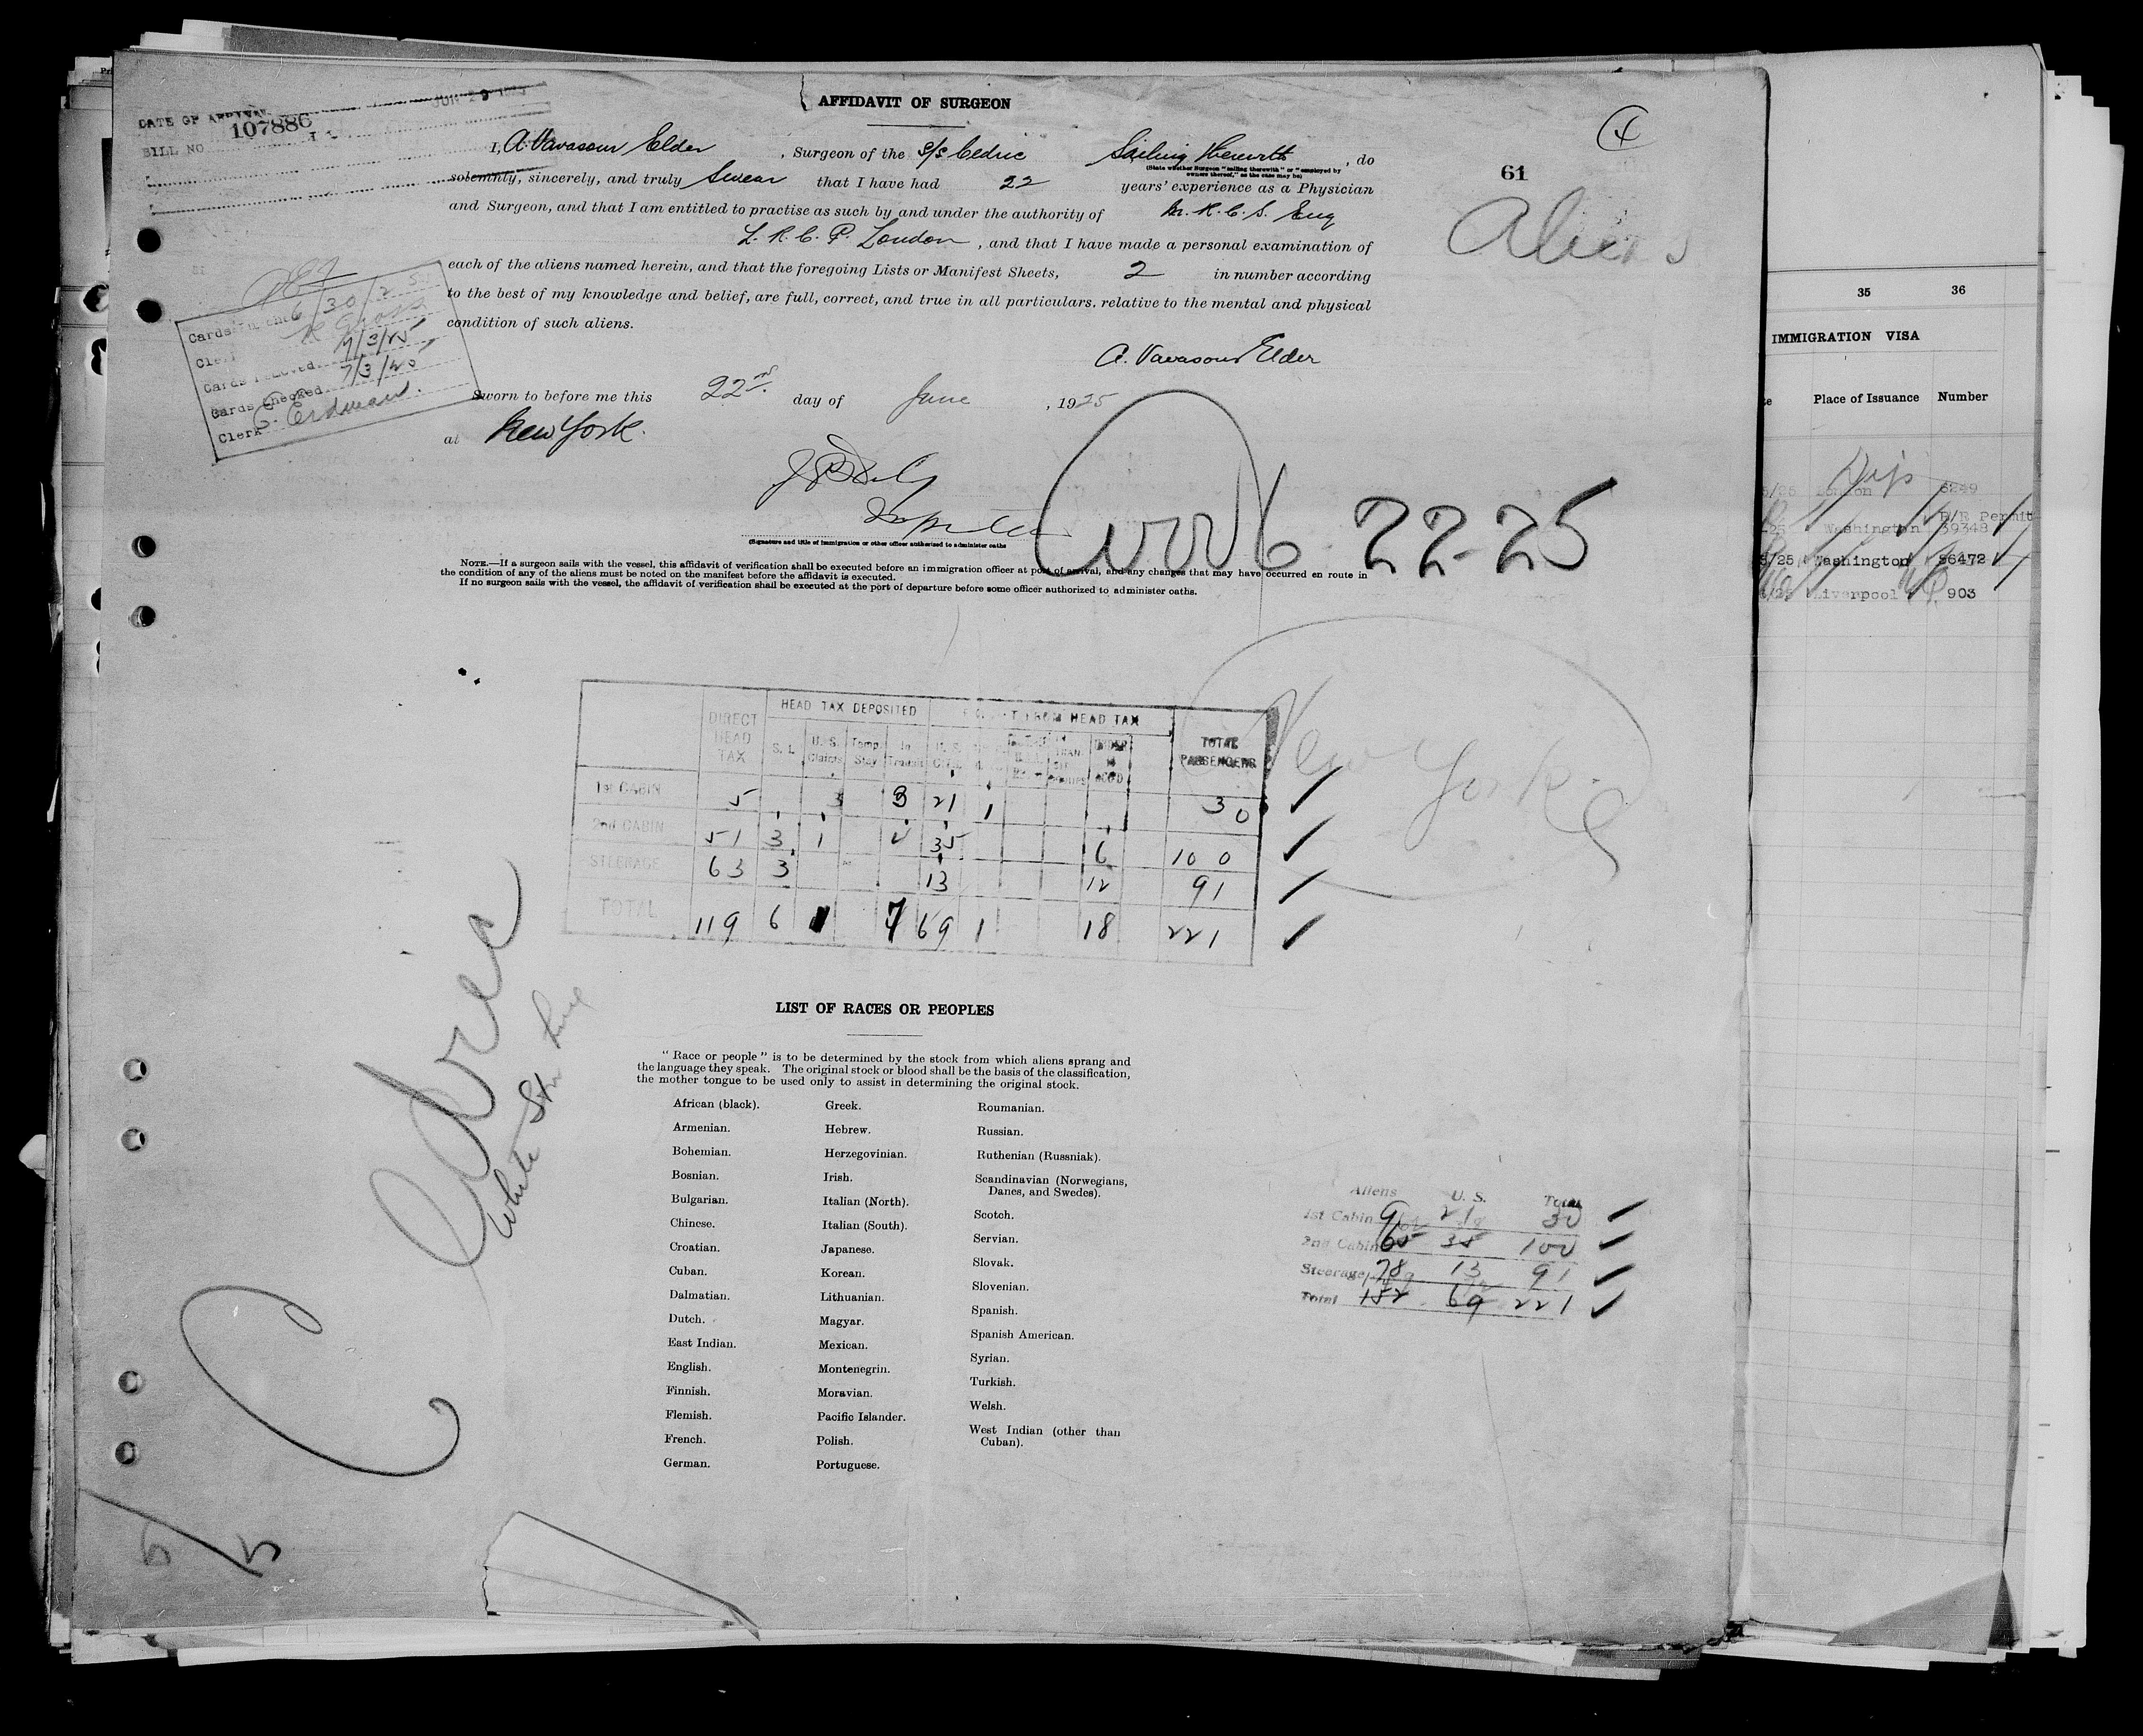 AFFIDAVIT OF SURGEON
DATE OF ARRIVAL
BILL NO. 107886
I, A. Vavasour Elder, Surgeon of the S/S Cedric Sailing Therewith, do
(State whether Surgeon "sailing therewith" or "employed by
owners thereof," as the case may be)
solemnly, sincerely, and truly Swear that I have had 22 years' experience as a Physician
61
and Surgeon, and that I am entitled to practise as such by and under the authority of M.R.C.S. Eng
Aliens
L.R.C.P. London, and that I have made a personal examination of
each of the aliens named herein, and that the foregoing Lists or Manifest Sheets, 2 in number according
to the best of my knowledge and belief, are full, correct, and true in all particulars. relative to the mental and physical
condition of such aliens.
A. Vavasour Elder
6/30/25
7/3/25
Cards removed
Cards Checked 7/3/25
Clerk Erdman
Sworn to before me this 22nd day of June, 1925
at New York.
(Signature and title of immigration or other officer authorized to administer oaths
22-25
NOTE.—If a surgeon sails with the vessel, this affidavit of verification shall be executed before an immigration officer at port of arrival, and any changes that may have occurred en route in
the condition of any of the aliens must be noted on the manifest before the affidavit is executed.
If no surgeon sails with the vessel, the affidavit of verification shall be executed at the port of departure before some officer authorized to administer oaths.
DIRECT HEAD TAX
HEAD TAX DEPOSITED
FROM HEAD TAX
TOTAL PASSENGERS
S. I. U. S. Claims Temp. Stay In Transit
1st CABIN 5 3 3 21 1 30
2nd CABIN 51 3 1 4 35 6 100
STEERAGE 63 3 13 12 91
TOTAL 119 6 1 7 69 1 18 221
New York
Cedric
White Star Line
LIST OF RACES OR PEOPLES
"Race or people" is to be determined by the stock from which aliens sprang and
the language they speak. The original stock or blood shall be the basis of the classification,
the mother tongue to be used only to assist in determining the original stock.
African (black).
Armenian.
Bohemian.
Bosnian.
Bulgarian.
Chinese.
Croatian.
Cuban.
Dalmatian.
Dutch.
East Indian.
English.
Finnish.
Flemish.
French.
German.
Greek.
Hebrew.
Herzegovinian.
Irish.
Italian (North).
Italian (South).
Japanese.
Korean.
Lithuanian.
Magyar.
Mexican.
Montenegrin.
Moravian.
Pacific Islander.
Polish.
Portuguese.
Roumanian.
Russian.
Ruthenian (Russniak).
Scandinavian (Norwegians,
Danes, and Swedes).
Scotch.
Servian.
Slovak.
Slovenian.
Spanish.
Spanish American.
Syrian.
Turkish.
Welsh.
West Indian (other than
Cuban).
Aliens U. S. Total
1st Cabin 9 21 30
2nd Cabin 65 35 100
Steerage 78 13 91
Total 152 69 221
35 36
IMMIGRATION VISA
Place of Issuance Number
London 6249
R/E Permit
Washington 39348
5/25 Washington 56472
Liverpool 903